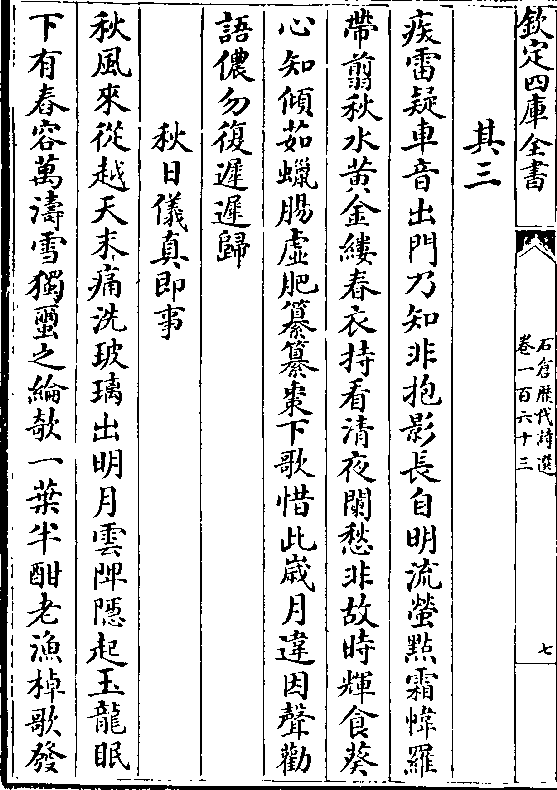 欽定四庫全書
石倉歷代詩選
卷一百六十三
七
其三
疾雷疑車音出門乃知非抱影長自明流螢㸃霜幃羅
帶翦秋水黃金縷春衣持看清夜闌愁非故時輝食葵
心知傾茹蠟腸虛肥纂纂棗下歌惜此歲月違因聲勸
語儂勿復遲遲歸
秋日儀真即事
秋風來從越天末痛洗玻璃出明月雲陴隱起玉龍眠
下有舂容萬濤雪獨蠒之綸欹一葉半酣老漁棹歌發